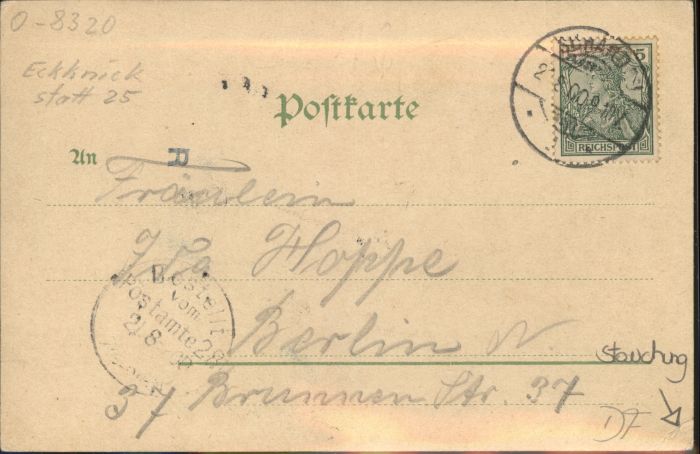 0-8320
Eckknick
statt 25
Postkarte
5
REICHSPOST
An
R
Fräulein
Ida Hoppe
Berlin N.
Brunnen Str. 37
37
Bestellt
vom
Postamte
2/8
Stauchung
DF